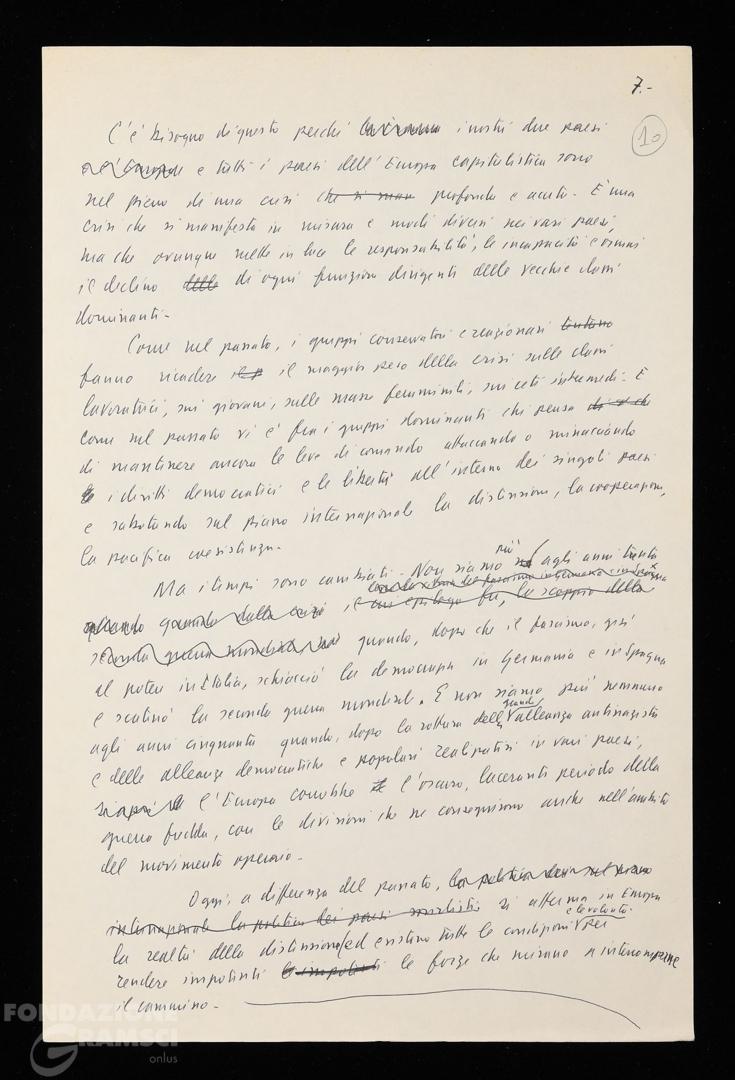 7.-
10
C'è bisogno di questo perché i nostri due paesi
e tutti i paesi dell'Europa capitalistica sono
nel pieno di una crisi che si man profonda e acuta. È una
crisi che si manifesta in misura e modi diversi nei vari paesi,
ma che ovunque mette in luce le responsabilità, le incapacità e ormai
il declino delle di ogni funzione dirigente delle vecchie classi
dominanti.-
Come nel passato, i gruppi conservatori e reazionari tentano
fanno ricadere il maggior peso della crisi sulle classi
lavoratrici, sui giovani, sulle masse femminili, sui ceti intermedi. E
come nel passato vi è fra i gruppi dominanti chi pensa
di mantenere ancora le leve di comando attaccando o minacciando
i diritti democratici e le libertà all'interno dei singoli paesi
e sabotando sul piano internazionale la distensione, la cooperazione,
la pacifica coesistenza.-
Ma i tempi sono cambiati. Non siamo più agli anni trenta
quando dalla crisi il cui epilogo fu, lo scoppio della
seconda guerra mondiale quando, dopo che il fascismo, già
al potere in Italia, schiacciò la democrazia in Germania e in Spagna
e scatinò la seconda guerra mondiale. E non siamo più nemmeno
agli anni cinquanta quando, dopo la rottura della grande alleanza antinazista
e delle alleanze democratiche e popolari realizzatesi in vari paesi,
l'Europa conobbe l'oscuro, lacerante periodo della
guerra fredda, con le divisioni che ne conseguirono anche nell'ambito
del movimento operaio.-
Oggi, a differenza del passato, la politica
internazionale la politica dei paesi socialisti si afferma in Europa
la realtà della distensione ed esistono tutte le condizioni e le volontà per
rendere impotenti le impotenti le forze che mirano a interromperne
il cammino.-
FONDAZIONE
GRAMSCI
onlus